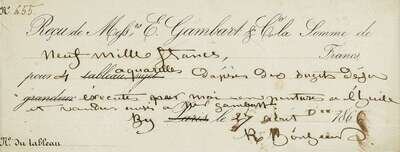 No. 255
Reçu de Mess.rs E. Gambart & Cie la Somme de
Neuf mille francs, Francs
pour 4 tableau aquarelles d'après des sujets déjà
grandeur exécutés pour moi en peinture à l'huile
et vendus aussi à Mr Gambart
By Paris le 27 août 186
R. Bonheur
No. du tableau